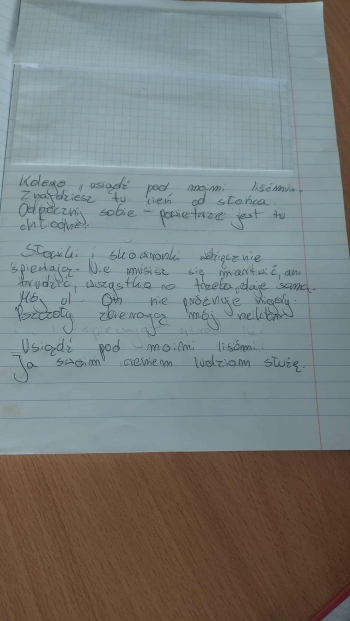 Kolego, usiądź pod moimi liśćmi.
Znajdziesz tu cień od słońca.
Odpocznij sobie - powietrze jest tu
chłodne.
Słowiki i skowronki wdzięcznie
śpiewają. Nie musisz się martwić, ani
trudzić, wszystko co trzeba, daje sama.
Mój ul - On nie próżnuje nigdy.
Pszczoły zbierają mój nektar.
Usiądź pod moimi liśćmi.
Ja swoim cieniem ludziom służę.